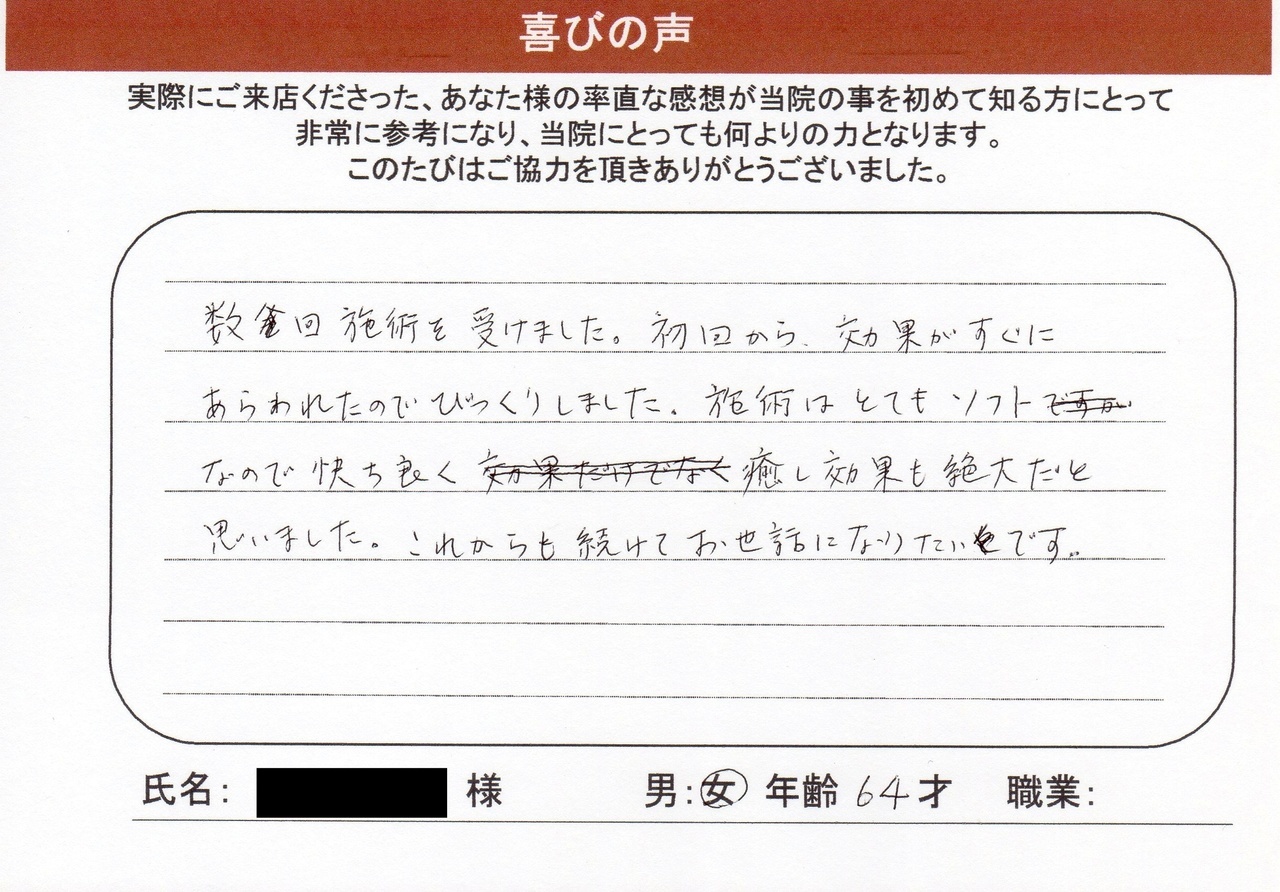 喜びの声
実際にご来店くださった、あなた様の率直な感想が当院の事を初めて知る方にとって
非常に参考になり、当院にとっても何よりの力となります。
このたびはご協力を頂きありがとうございました。
数回 施術を受けました。初回から、効果がすぐに
あらわれたのでびっくりしました。施術はとてもソフトですが
なので快ち良く効果だけでなく癒し効果も絶大だと
思いました。これからも続けてお世話になりたいです。
氏名: 様 男:女 年齢 64才 職業: